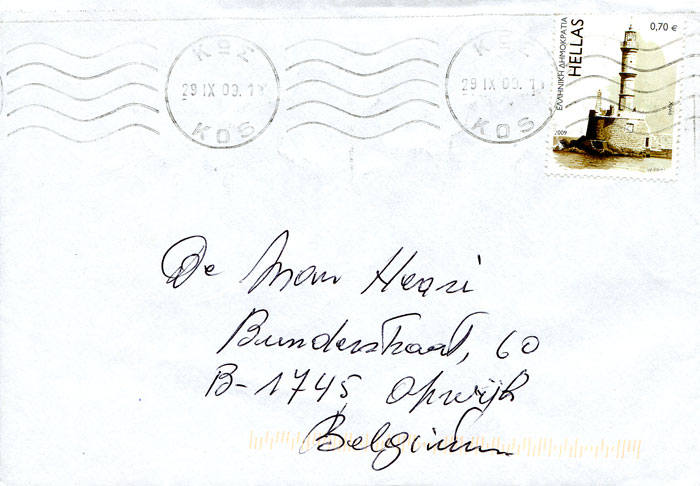 ΚΩΣ
29 IX 09. 1
KOS
ΚΩΣ
29 IX 09. 1
KOS
ΕΛΛΗΝΙΚΗ ΔΗΜΟΚΡΑΤΙΑ
HELLAS
0,70 €
2009
De Man Henri
Bunderstraat, 60
B-1745 Opwijk
Belgium